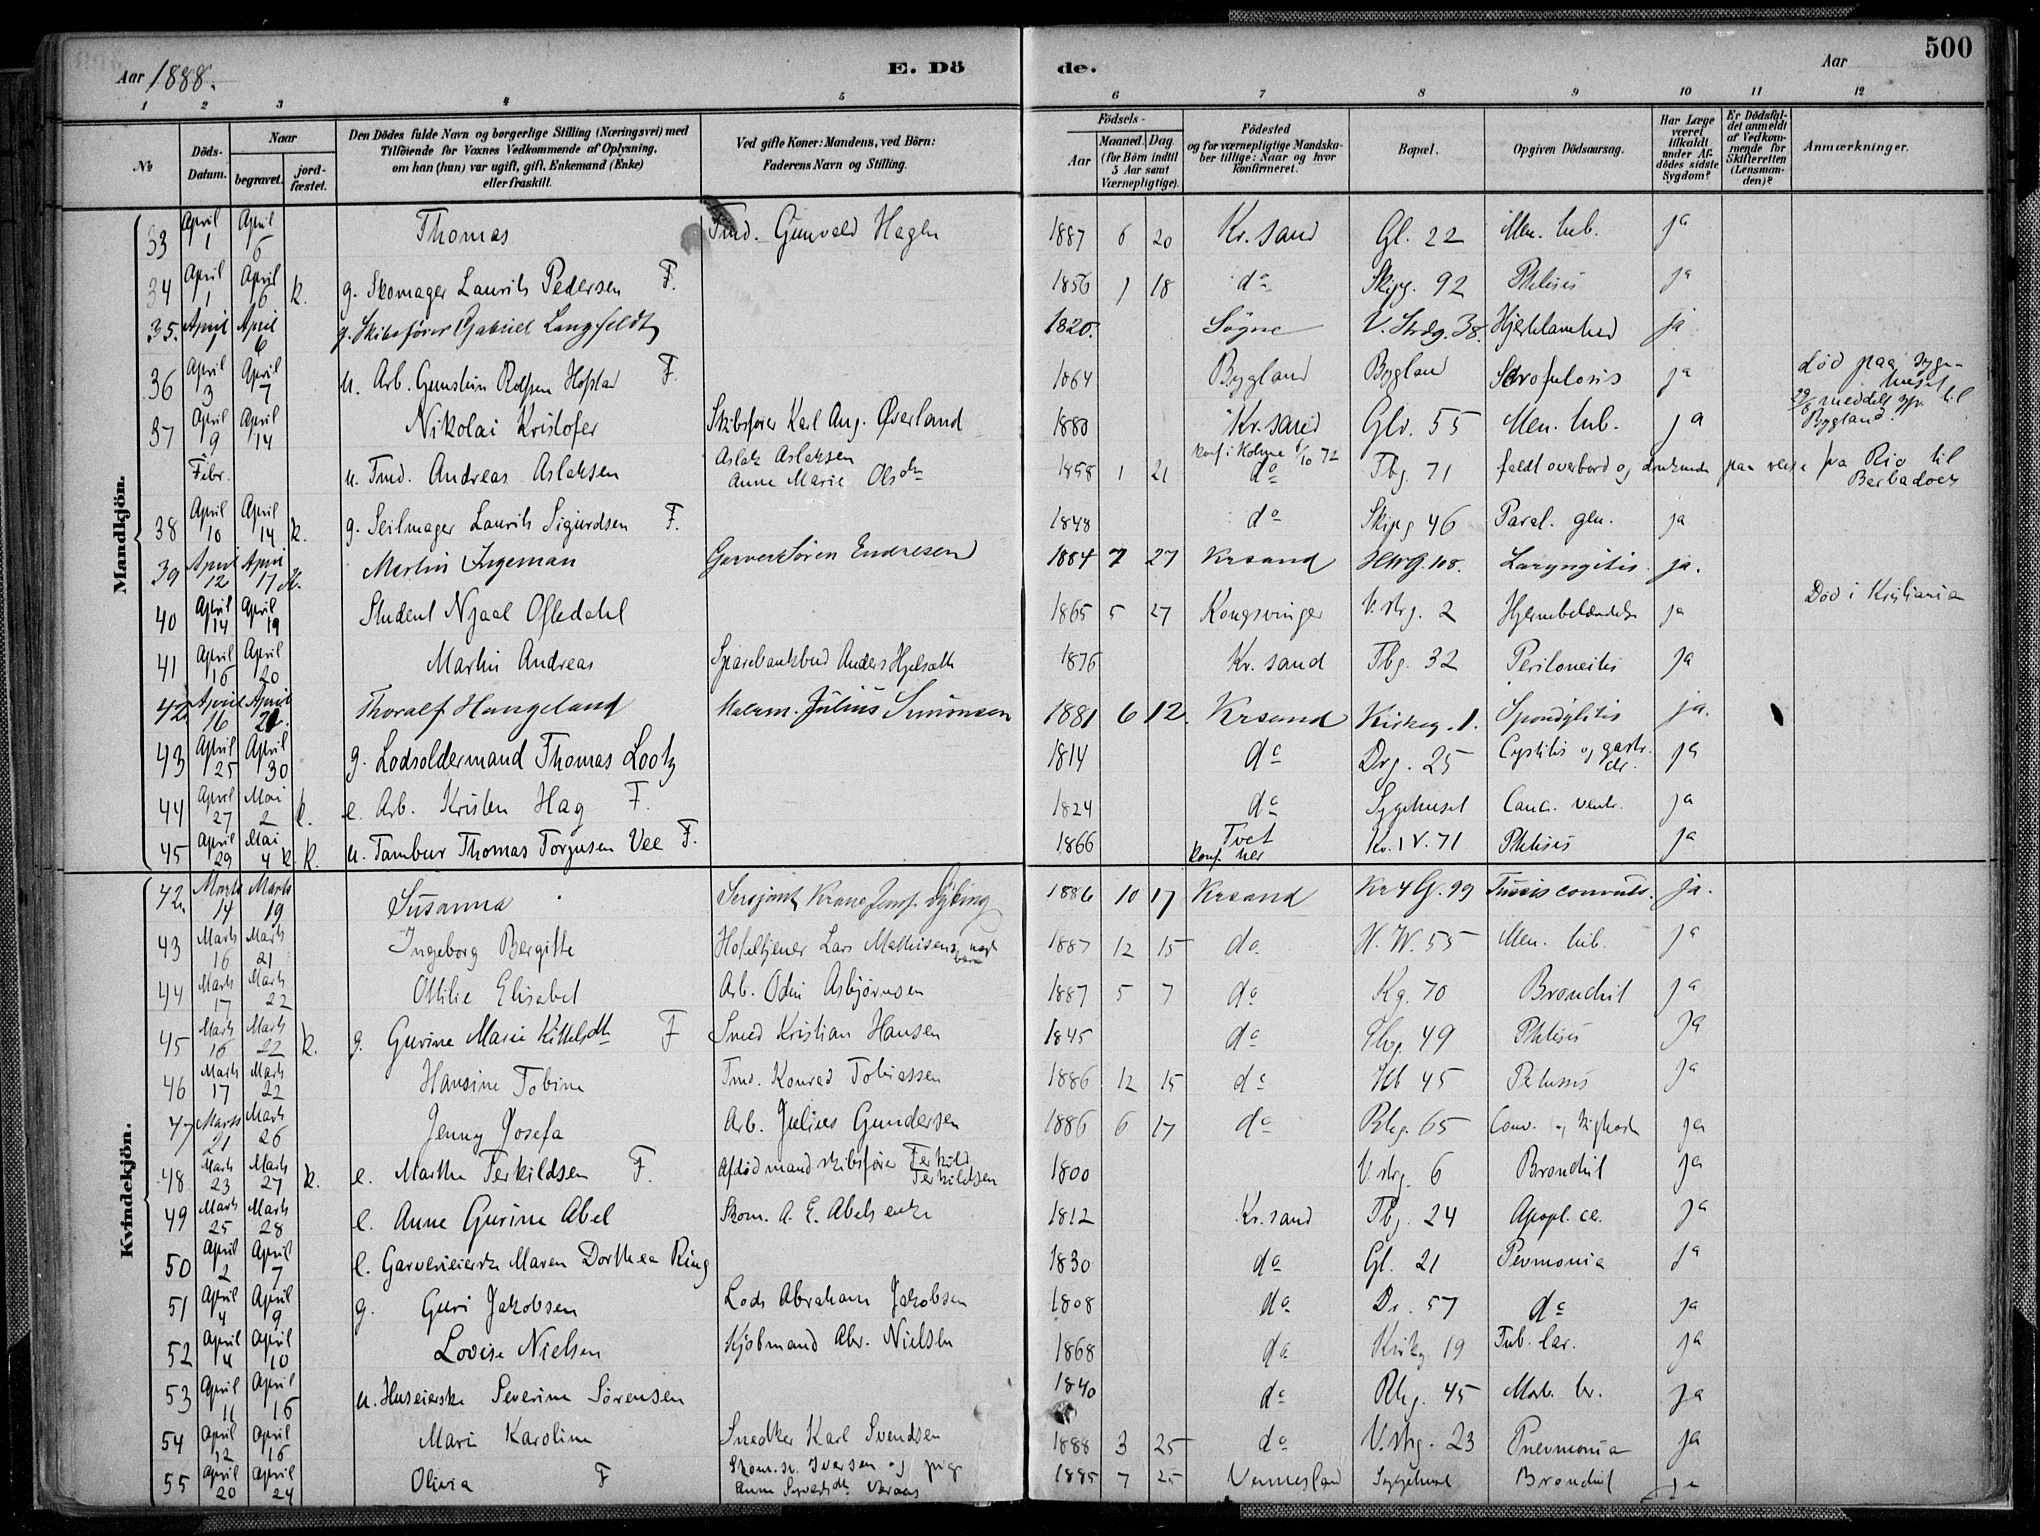 Aar 1888.
E. Dö
de.
Aar
500
1 2 3 4 5 6 7 8 9 10 11 12
No
Döds-Datum.
Naar
begravet.
jord-fæstet.
Den Dödes fulde Navn og borgerlige Stilling (Næringsvei) med
Tilföiende for Voxnes Vedkommende af Oplysning,
om han (hun) var ugift, gift, Enkemand (Enke)
eller fraskilt.
Ved gifte Koner: Mandens, ved Börn:
Faderens Navn og Stilling.
Födsels-
Aar
Maaned. Dag.
(for Börn indtil
5 Aar samt
Værnepligtige).
Födested
og for værnepligtige Mandska-
ber tillige: Naar og hvor
konfirmeret.
Bopæl.
Opgiven Dödsaarsag.
Har Læge
været
tilkaldt
under Af-
dödes sidste
Sygdom?
Er Dödsfal-
det anmeldt
af Vedkom-
mende for
Skifteretten
(Lensman-
den)?
Anmærkninger.
Mandkjön.
33 April 1 April 6 Thomas Tmd. Gunvald Hagen 1887 6 20 Kr.sand Gl. 22 Men. tub. ja
34 April 1 April 6 k. g. Skomager Laurits Pedersen F. 1856 1 18 do Skipg. 92 Phtisis ja
35. April 1 April 6 g. Skibsfører Gabriel Langfeldt 1820. Søgne V. Strdg. 38. Hjertelamhed ja
36 April 3 April 7 u. Arb. Gunstein Rolfsen Hoftad F. 1864 Bygland Bygland Scrofulosis ja død paa Syge-
huset
meddelt til
Bygland.
37 April 9 April 14 Nikolai Kristofer Skibsfører Karl Aug. Øverland 1880 Kr.sand Glv. 55 Men. tub. ja
Febr. u. Tmd. Andreas Aslaksen Aslak Aslaksen
Anne Marie Olsdtr 1858 1 21 do Tbg. 71 faldt overbord og druknede paa reise fra Rio til
Barbadoes
38 April 10 April 14 k. g. Seilmager Laurits Sigurdsen F. 1848 do Skipg 46 Paral. gen. ja
39 April 12 April 17 k. Martin Ingeman Garver Søren Endresen 1884 7 27 Krsand HWG. 108. Laryngitis. ja.
40 April 14 April 19 Student Njaal Ofledahl 1865 5 27 Kongsvinger V. strg. 2 Hjernebetændelse ja Død i Kristiania
41 April 16 April 20 Martin Andreas Sparebankbud Anders Hjelsæth 1876 Kr.sand Tbg. 32 Peritoneitis ja
42 April 16 April 21. Thoralf Hangeland Malerm. Julius Simonsen 1881 6 12. Krsand Kirkeg. 1. Spondylitis ja.
43 April 25 April 30 g. Lodsoldermand Thomas Lootz 1814 do Drg. 25 Cystitis og gastr. ja
44 April 27 Mai 2 k. e. Arb. Kristen Hag F. 1824 do Sygehuset Canc. ventr. ja
45 April 29 Mai 4 k. k. u. Tambur Thomas Torgusen Vee F. 1866 Tvet
konf. her Kr. IV. 71 Phtisis ja
Kvindekjön.
42. Marts 14 Marts 19 Susanna Sersjant 1886 10 17 Krsand Kr 4 G. 99 Tussis convuls. ja.
43 Marts 16 Marts 21 Ingeborg Bergitte Hoteltjener Lars Mathisens 1887 12 15 do H. W. 55 Men. tub. ja
44 Marts 17 Marts 22 Ottilie Elisabet Arb. Odin Asbjørnsen 1887 5 7 do Kg. 70 Bronchit ja
45 Marts 16 Marts 22 k. g. Gurine Marie Kittelsdtr F Smed Kristian Hansen 1845 do Tbg. 49 Phtisis ja
46 Marts 17 Marts 22 Hansine Tobine Tmd. Konrad Tobiassen 1886 12 15 do Hb 45 Pertussis ja
47 Marts 21 Marts 26 Jenny Josefa Arb. Julius Gundersen 1886 6 17 do Rhg. 65 Conv. og kighoste ja
48 Marts 23 Marts 27 k. e. Marthe Terkildsen F. Afdød mand skibsfører Terkild
Terkildsen 1800 V. strg. 6 Bronchit ja
49 Marts 25 Marts 28 e. Anne Gurine Abel Skom. A. E. Abels enke 1812 Kr.sand Tbg. 24 Apopl. ce. ja
50 April 2 April 7 e. Garverieierske Maren Dorthea Ring 1830 do Gl. 21 Pevmonia ja
51 April 4 April 9 g. Guri Jakobsen Lods Abraham Jakobsen 1808 do Dr. 57 do ja
52 April 4 April 10 Lovise Nielsen Kjöbmand Abr. Nielsen 1868 do Kirkg 19 Tub. lar. ja
53 April 11 April 16 u. Huseierske Severine Sørensen 1840 do Rhg. 45 Morb. br. ja
54 April 12 April 16 Mari Karoline Snedker Karl Svendsen 1888 3 25 do V. strg. 23 Pnevmonia ja
55 April 20 April 24 Olivia F Skom. sv. Iversen og pige
Anne 1885 7 25 Vennesland Sygehuset Bronchit ja